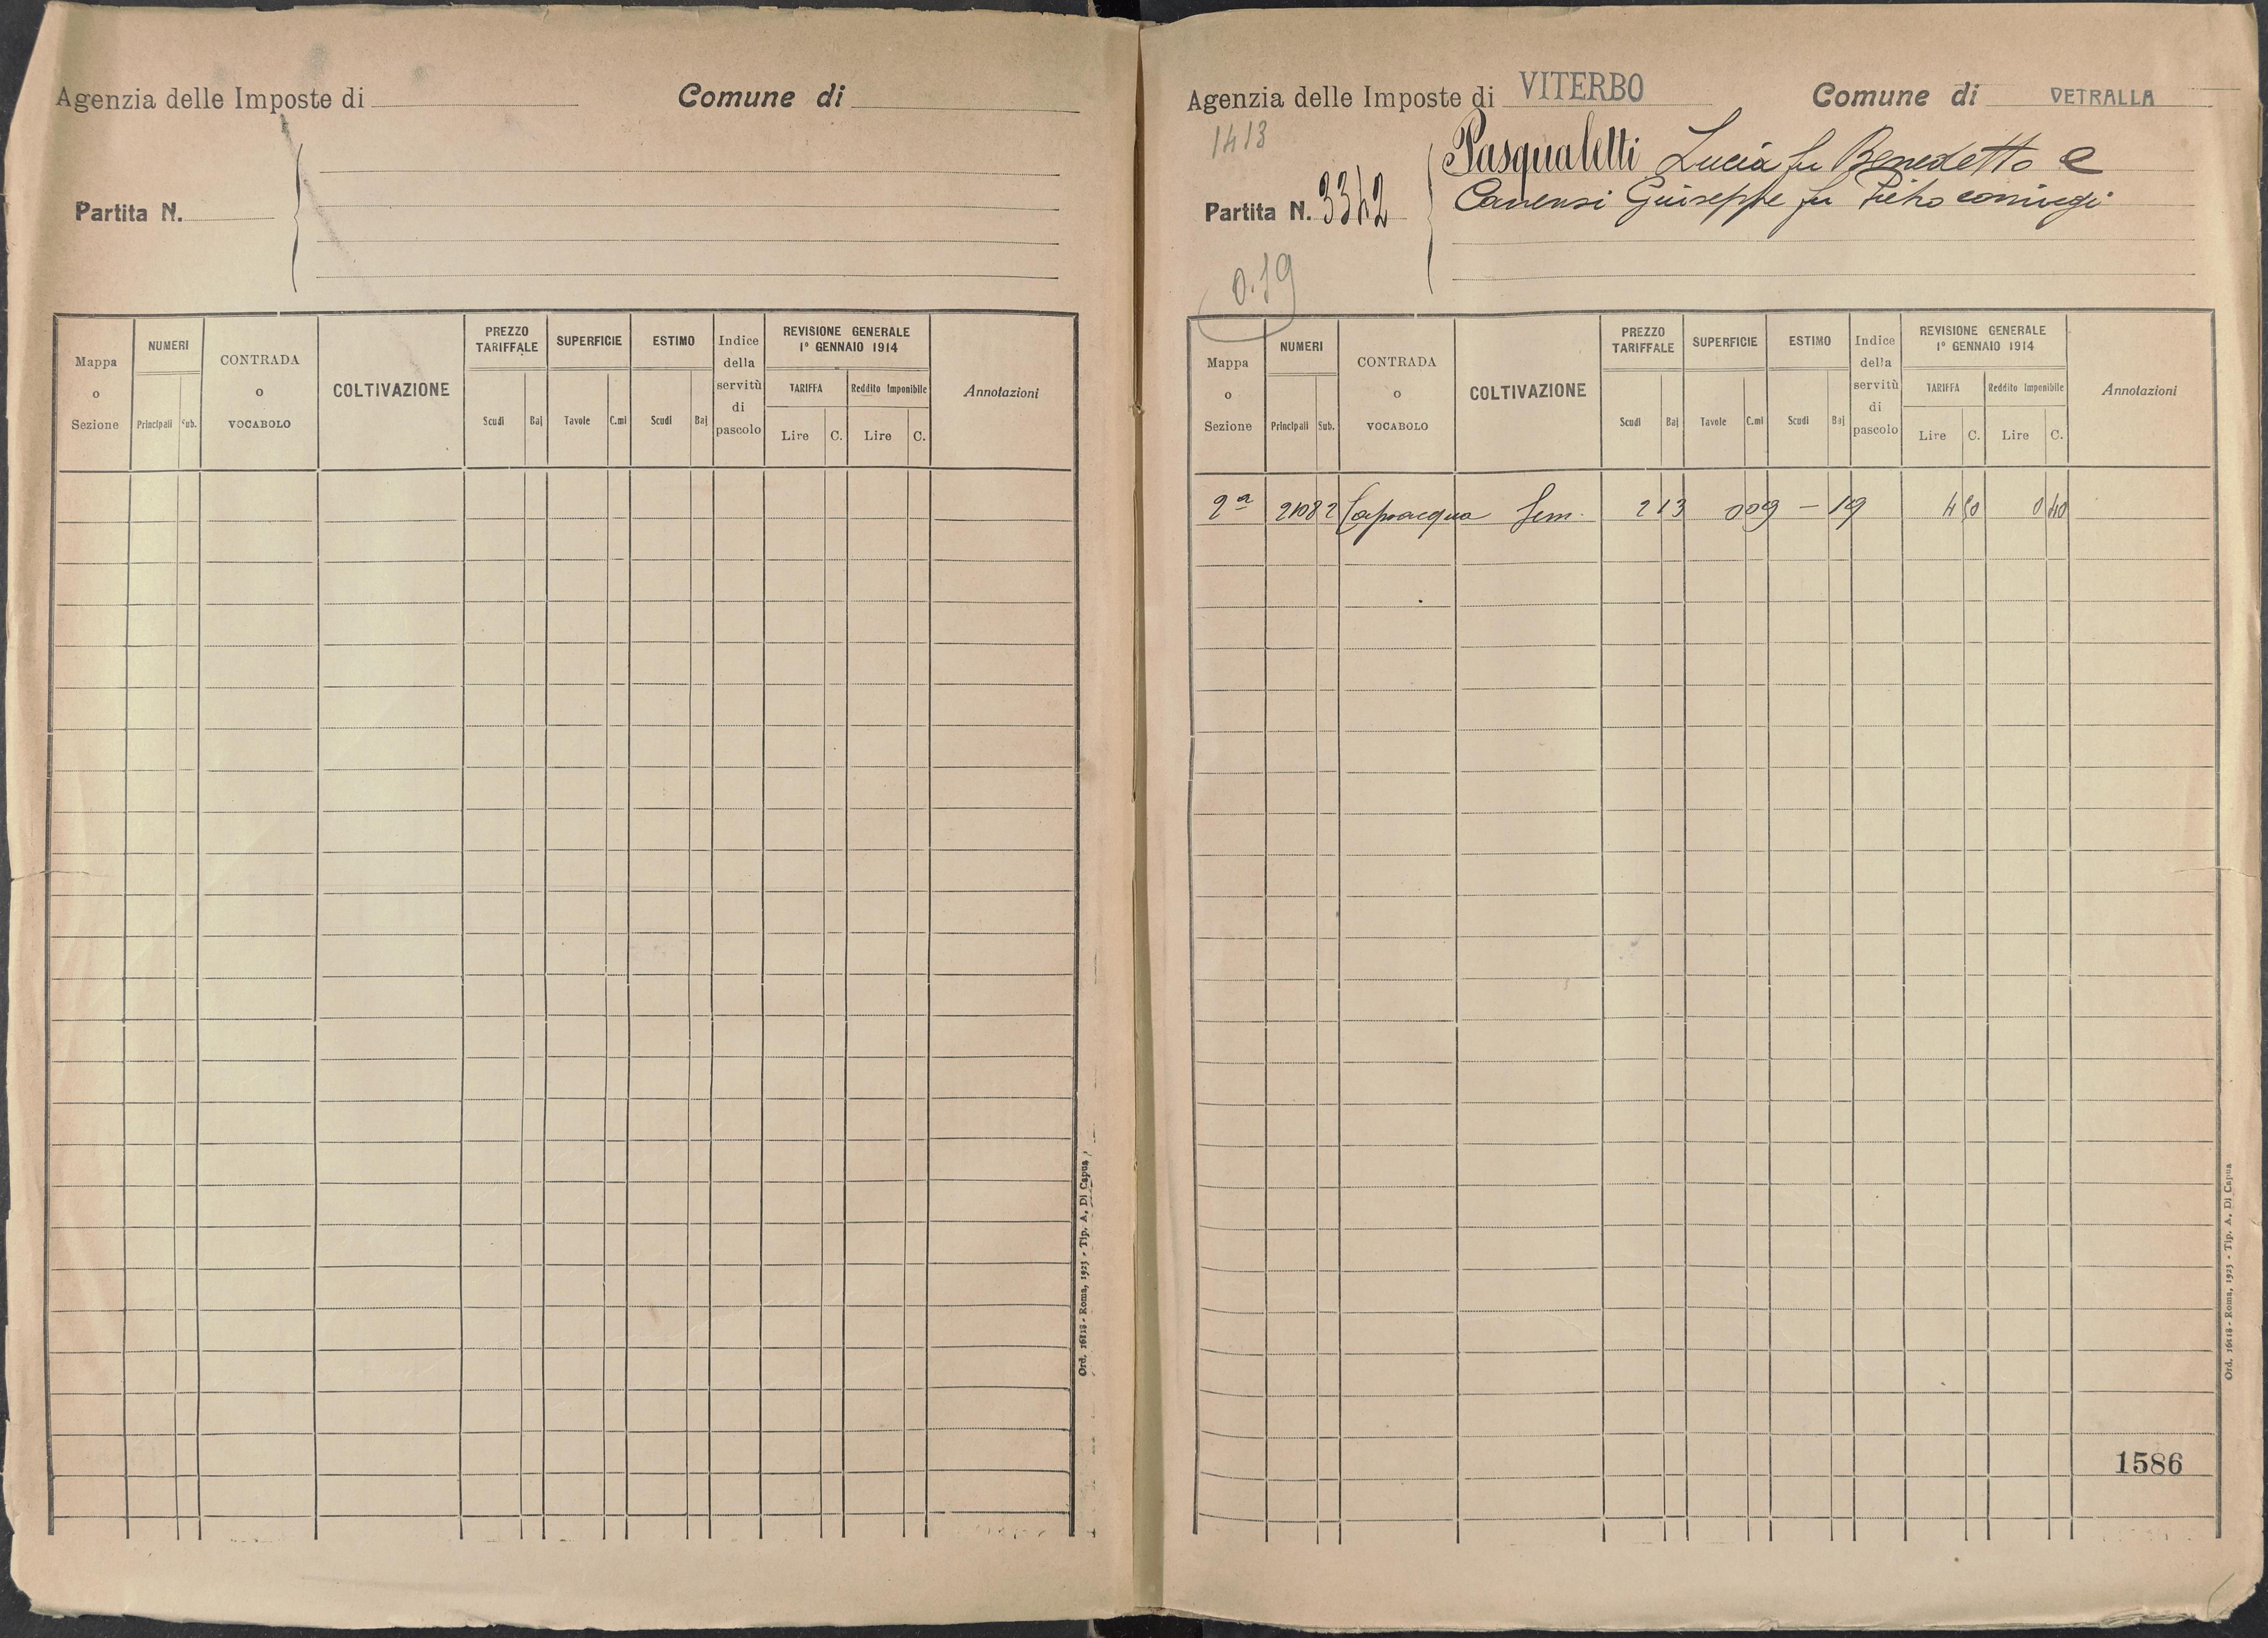 Agenzia delle Imposte di
Comune di
Partita N.
Mappa o Sezione
NUMERI
Principali Sub.
CONTRADA o VOCABOLO
COLTIVAZIONE
PREZZO TARIFFALE
Scudi Baj
SUPERFICIE
Tavole C.mi
ESTIMO
Scudi Baj
Indice della servitù di pascolo
REVISIONE GENERALE
1° GENNAIO 1914
TARIFFA Reddito Imponibile
Lire C. Lire C.
Annotazioni
Ord. 16118 - Roma, 1923 - Tip. A. Di Capua
Agenzia delle Imposte di VITERBO
Comune di VETRALLA
1413
Partita N. 3342
Pasqualetti Lucia fu Benedetto e
Canensi Giuseppe fu Pietro coniugi
0.19
Mappa o Sezione
NUMERI
Principali Sub.
CONTRADA o VOCABOLO
COLTIVAZIONE
PREZZO TARIFFALE
Scudi Baj
SUPERFICIE
Tavole C.mi
ESTIMO
Scudi Baj
Indice della servitù di pascolo
REVISIONE GENERALE
1° GENNAIO 1914
TARIFFA Reddito Imponibile
Lire C. Lire C.
Annotazioni
2ª 2108 2 Capoacqua Sem. 2 13 0 09 - 19 4 50 0 40
1586
Ord. 16118 - Roma, 1923 - Tip. A. Di Capua